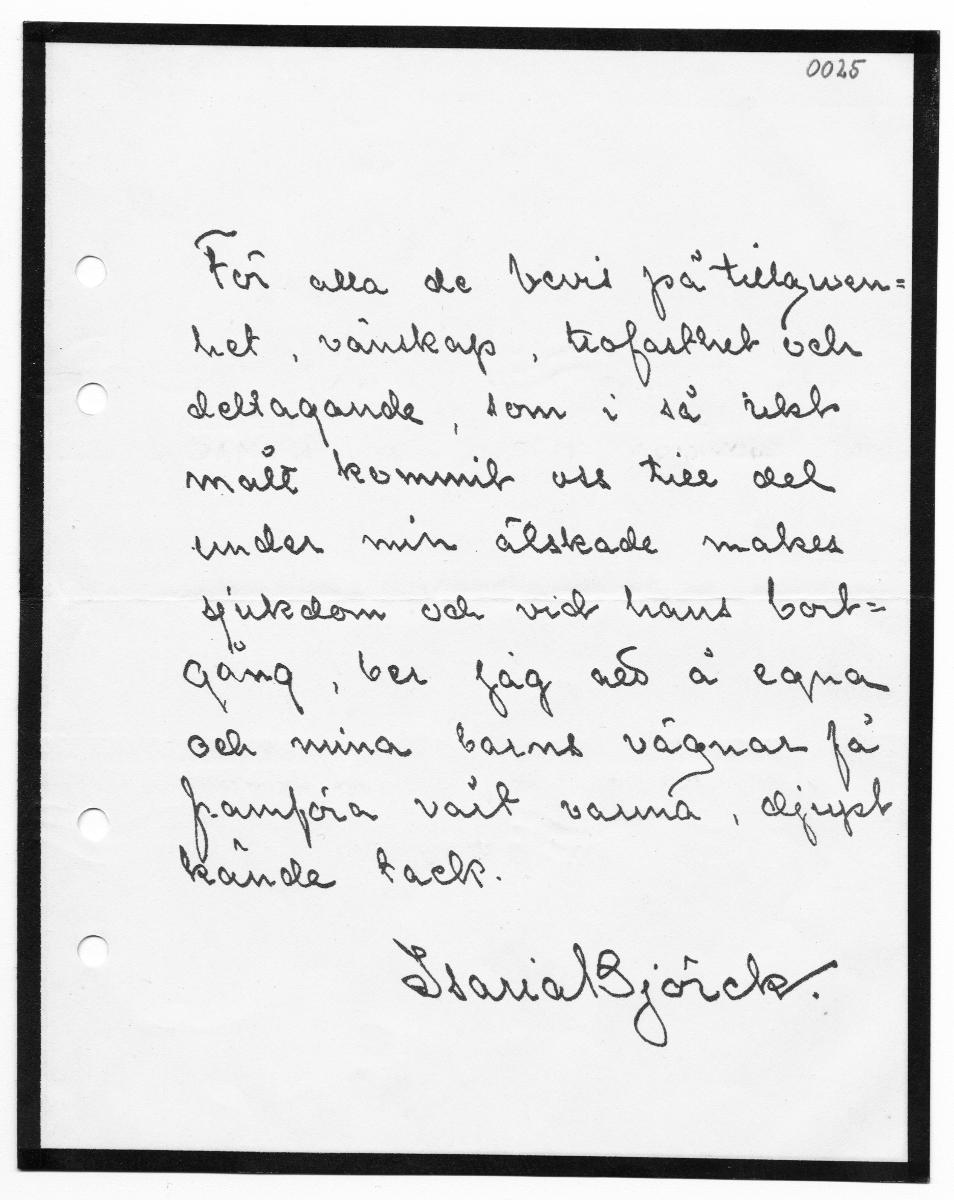 0025
För alla de bevis på tillgiven=
het, vänskap, trofasthet och
deltagande, som i så rikt
mått kommit oss till del
under min älskade makes
sjukdom och vid hans bort=
gång, ber jag att å egna
och mina barns vägnar få
framföra vårt varma, djupt
kände tack.
Maria Björck.